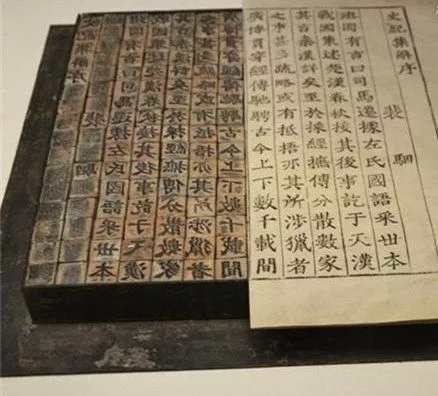 史記集解序
裴駰
班固有言曰司馬遷據左氏國語采世本
戰國策述楚漢春秋接其後事訖于天漢
其言秦漢詳矣至於採經摭傳分散數家
之事甚多疏略或有抵捂亦其所涉獵者
廣博貫穿經傳馳騁古今上下數千載間